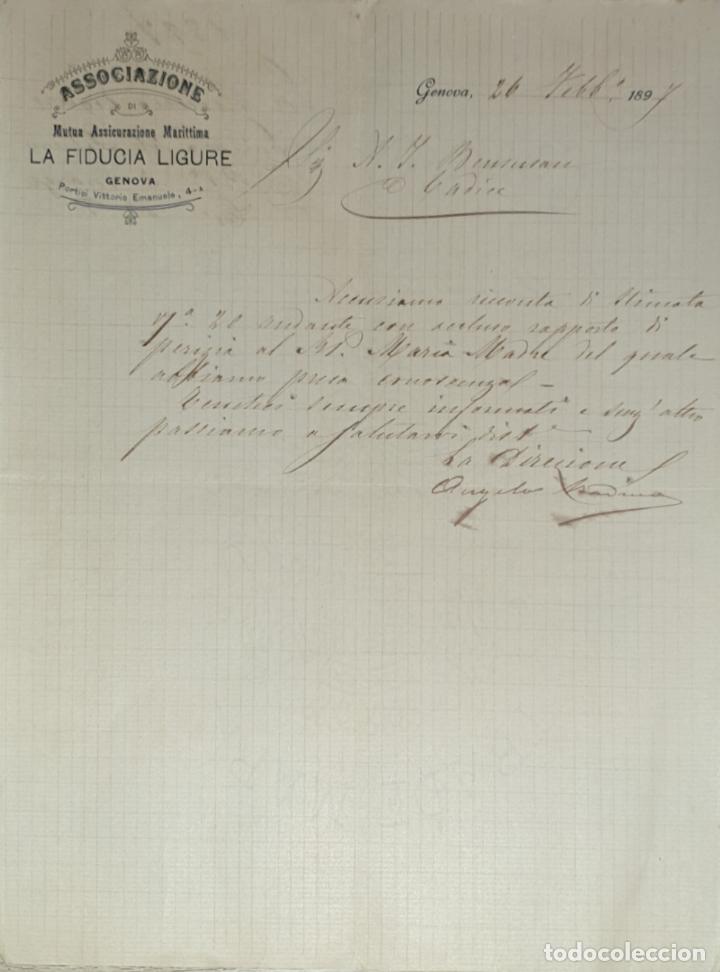 ASSOCIAZIONE
DI
Mutua Assicurazione Marittima
LA FIDUCIA LIGURE
GENOVA
Portici Vittorio Emanuele, 4-A
Genova, 26 Febb.º 1897
Sig
Cadice
Accusiamo ricevuta di stimata
20 andante con accluso rapporto di
perizia al Bk. Maria Madre del quale
abbiamo presa conoscenza -
Teneteci sempre informati e senz'altro
passiamo a salutarvi dist.
La Direzione
Angelo
todocoleccion